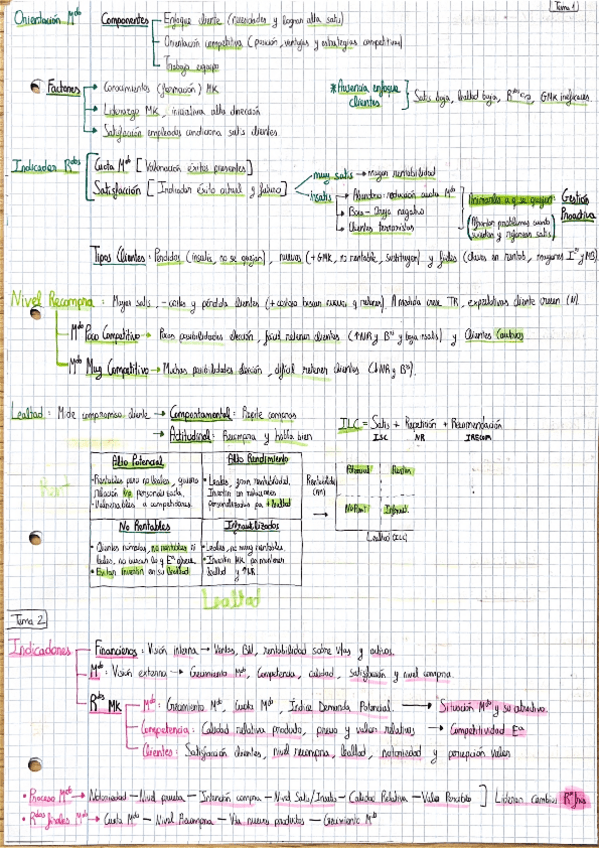 Tema 1
Orientación Mdo Componentes Enfoque cliente (necesidades y logran alta satis)
Orientación competitiva (posición, ventajas y estrategias competitivas)
Trabajo equipo
Factores Conocimientos (formación) MK
Liderazgo MK, iniciativa alta dirección
Satisfacción empleados condiciona satis clientes
*Ausencia enfoque clientes Satis baja, lealtad baja, GMK ineficaces
Indicador Rdos Cuota Mdo [Valoración éxitos presentes]
Satisfacción [Indicador éxito actual y futuro]
muy satis → mayor rentabilidad
insatis Abandono-reducción cuota Mdo
Boca-Oreja negativo
Clientes terroristas
Animarles a q se quejen
(Afrontar problemas cuando y mejorar satis)
Gestión Proactiva
Tipos Clientes: Perdidos (insatis, no se quejan), nuevos (+GMK, no rentable, sustituyen) y fieles (claves en rentab, mayores y MB).
Nivel Recompra: Mayor satis, - costes y pérdida clientes (+costoso buscar nuevos q retener). A medida crece TR, expectativas cliente crecen (N).
Mdo Poco Competitivo → Pocas posibilidades elección, fácil retener clientes (↑NR y Bº y baja satis) y Clientes Cautivos
Mdo Muy Competitivo → Muchas posibilidades elección, difícil retener clientes (↓NR y Bº).
Lealtad: Mide compromiso cliente → Comportamental: Repite compras
→ Actitudinal: Recompra y habla bien
ILC = Satis + Repetición + Recomendación
ISC NR IRECOM
Alto Potencial
• Rentables pero no leales, quieren relación no personalizada.
• Vulnerables a competidores.
Alto Rendimiento
• Leales, gran rentabilidad.
Invertir en relaciones personalizadas pa + lealtad
No Rentables
• Clientes nómadas, no rentables ni leales, no buscan lo q Eª ofrece.
• Evitan inversión en su lealtad
Infrautilizados
• Leales, no muy rentables.
• Inversión MK pa mantener lealtad y ↑NR
Rentabilidad
Potencial Rendim
No Rent Infraut
Lealtad (ILC)
Rent
Lealtad
Tema 2
Indicadores Financieros: Visión interna → Ventas, Bº, rentabilidad sobre vtas y activos.
Mdo: Visión externa → Crecimiento Mdo, Competencia, calidad, Satisfacción y nivel compra
Rdos MK Mdo: Crecimiento Mdo, Cuota Mdo, Índice Demanda Potencial. → Situación Mdo y su atractivo
Competencia: Calidad relativa producto, precio y valor relativos → Competitividad Eª
Clientes: Satisfacción clientes, nivel recompra, lealtad, notoriedad y percepción valor
• Proceso Mdo → Notoriedad – Nivel prueba – Intención compra – Nivel Satis/Insatis – Calidad Relativa – Valor Percibido ] Lideran cambios
• Rdos finales Mdo → Cuota Mdo – Nivel Recompra – Vta nuevos productos – Crecimiento Mdo